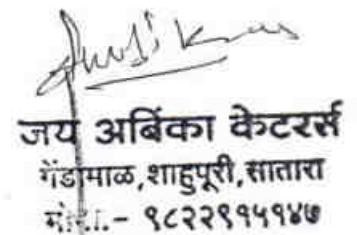 जय अबिंका केटरर्स
गेंडामाळ,शाहुपूरी,सातारा
- ९८२२९१५१४७